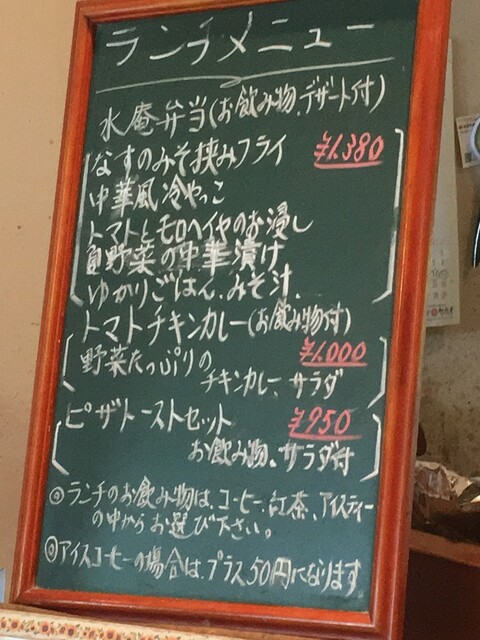 ランチメニュー
水庵弁当(お飲み物、デザート付)
なすのみそ挟みフライ ¥1.380
中華風冷やっこ
トマトとモロヘイヤのお浸し
野菜の中華漬け
ゆかりごはん、みそ汁、
トマトチキンカレー(お飲み物付)
野菜たっぷりの ¥1.000
チキンカレー、サラダ
ピザトーストセット ¥950
お飲み物、サラダ付
◎ランチのお飲み物は、コーヒー、紅茶、アイスティー
の中からお選び下さい。
◎アイスコーヒーの場合は、プラス50円になります